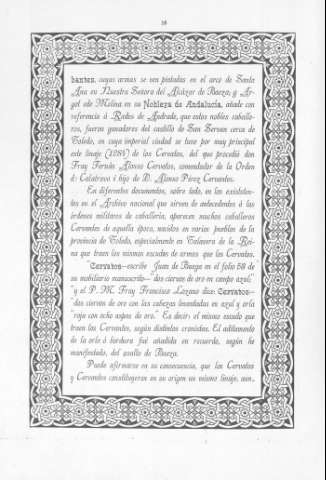 16
bantes, cuyas armas se ven pintadas en el arco de Santa
Ana en Nuestra Señora del Alcázar de Baeza; y Ar-
gol ede Molina en su Nobleza de Andalucía, añade con
referencia á Rades de Andrade, que estos nobles caballe-
ros, fueron ganadores del castillo de San Servan cerca de
Toledo, en cuya imperial ciudad se tuvo por muy principal
este linaje (1085) de los Cervatos, del que procedió don
Fray Fernán Alonso Cervatos, comendador de la Orden
de Calatrava é hijo de D. Alonso Pérez Cervantes.
En diferentes documentos, sobre todo, en los existen-
tes en el Archivo nacional que sirven de antecedentes á las
órdenes militares de caballería, aparecen muchos caballeros
Cervantes de aquella época, nacidos en varios pueblos de la
provincia de Toledo, especialmente en Talavera de la Rei-
na que traen los mismos escudos de armas que los Cervatos.
"Cervatos—escribe Juan de Baeza en el folio 58 de
su nobiliario manuscrito—"dos ciervas de oro en campo azul;"
"y el P. M. Fray Francisco Lozano dice: Cervatos—
"dos ciervas de oro con las cabezas levantadas en azul y orla
"roja con ocho aspas de oro." Es decir: el mismo escudo que
traen los Cervantes, según distintos cronistas. El aditamento
de la orla ó bordura fué añadido en recuerdo, según he
manifestado, del asalto de Baeza.
Puede afirmarse en su consecuencia, que los Cervatos
y Cervantes constituyeron en su origen un mismo linaje, aun,